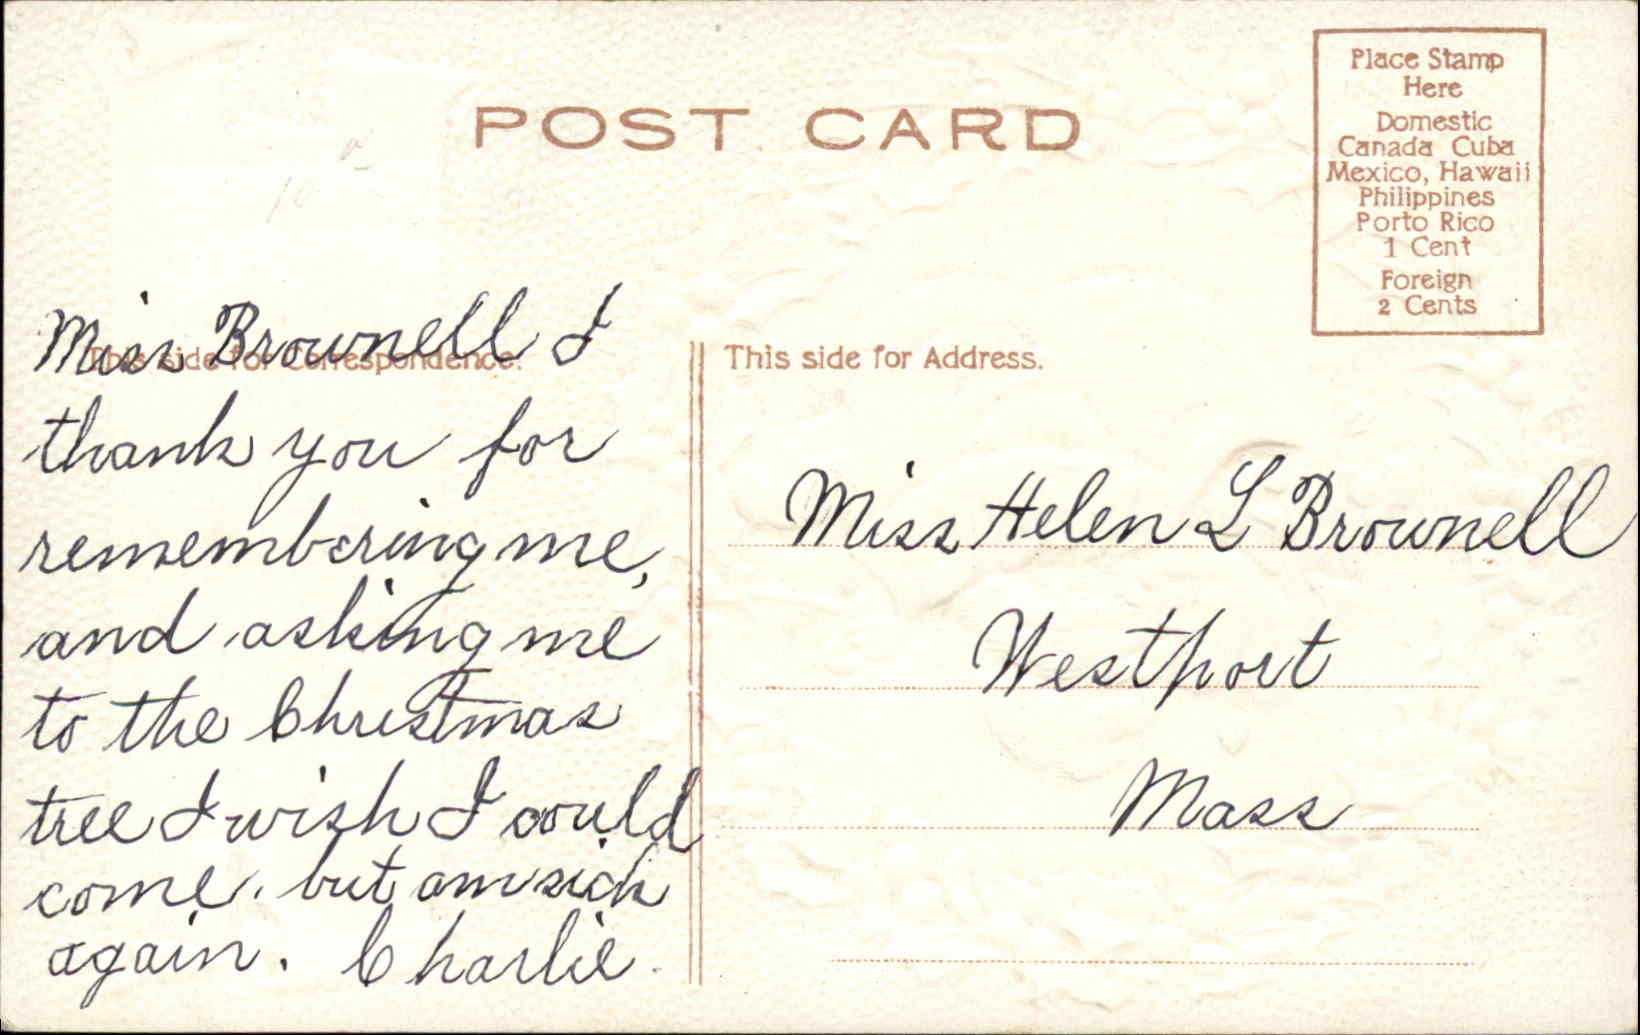 POST CARD
Place Stamp
Here
Domestic
Canada Cuba
Mexico, Hawaii
Philippines
Porto Rico
1 Cent
Foreign
2 Cents
This side for Correspondence.
Miss Brownell I
thank you for
remembering me,
and asking me
to the Christmas
tree I wish I could
come. but am sick
again. Charlie.
This side for Address.
Miss Helen L Brownell
Westport
Mass